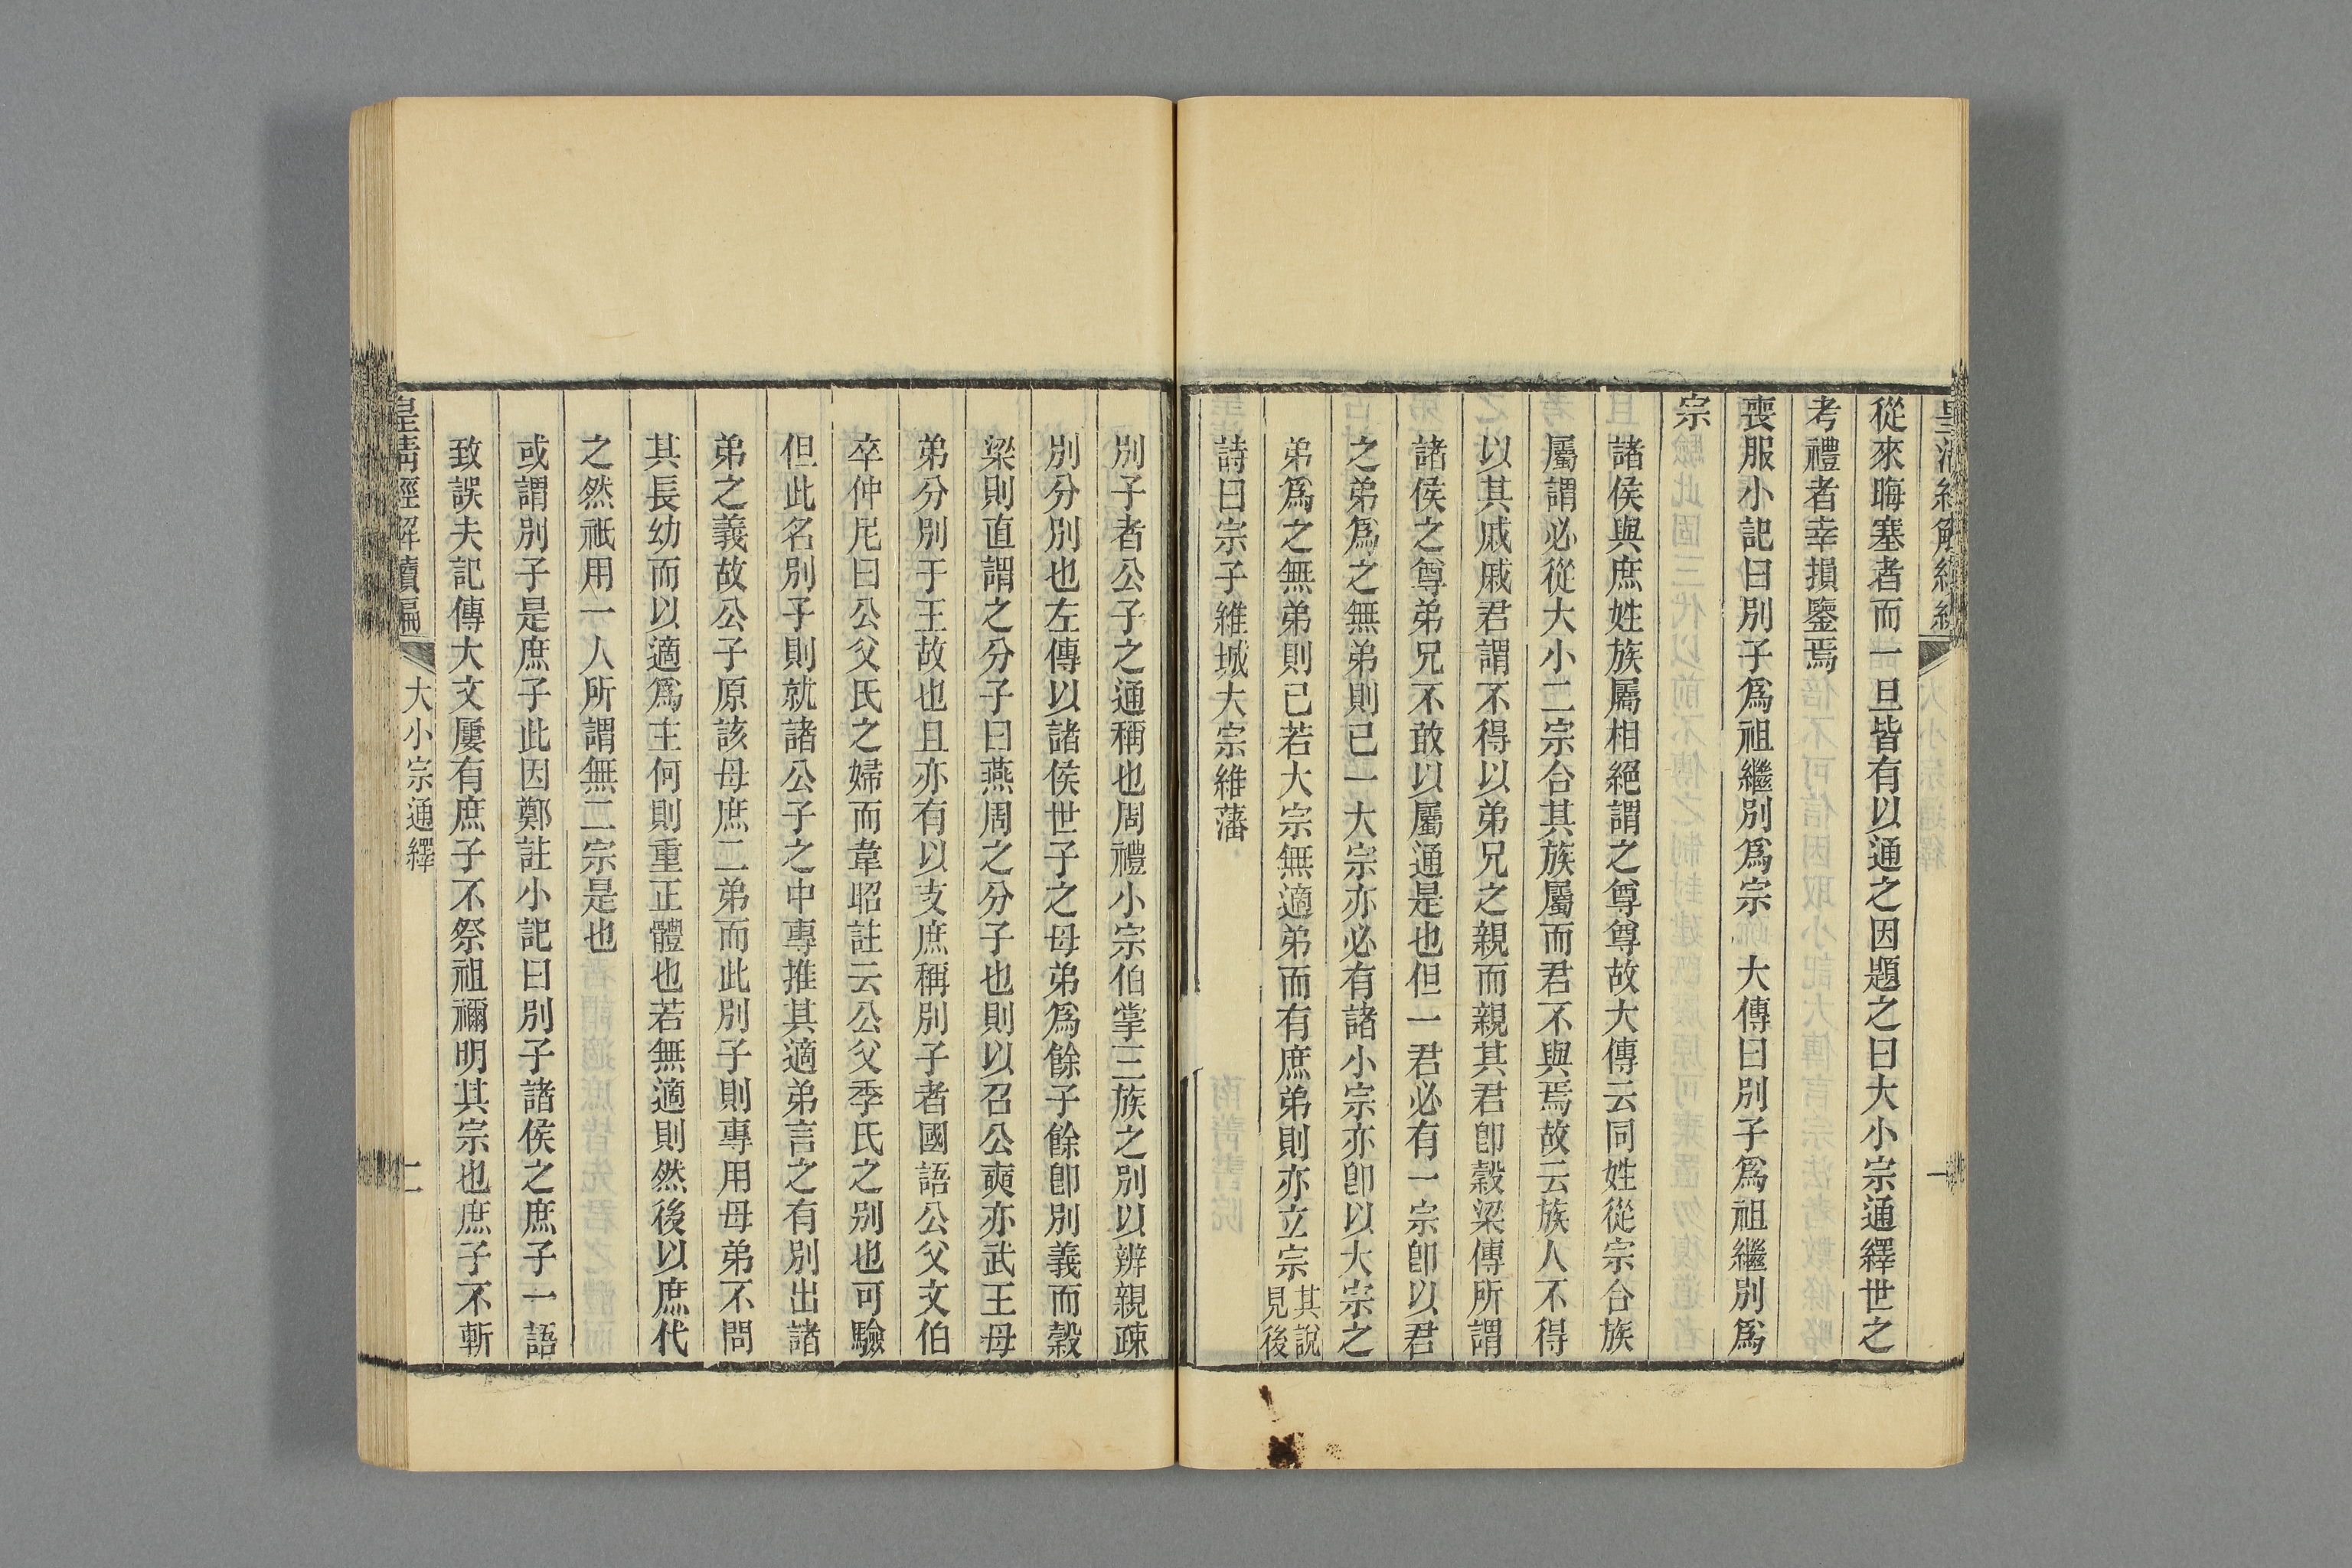 從來晦塞者而一旦皆有以通之因題之曰大小宗通繹世之
考禮者幸損鑒焉
喪服小記曰別子爲祖繼別爲宗 大傳曰別子爲祖繼別爲
宗
諸侯與庶姓族屬相絕謂之尊尊故大傳云同姓從宗合族
屬謂必從大小二宗合其族屬而君不與焉故云族人不得
以其戚戚君謂不得以弟兄之親而親其君卽穀梁傳所謂
諸侯之尊弟兄不敢以屬通是也但一君必有一宗卽以君
之弟爲之無弟則已一大宗亦必有諸小宗亦卽以大宗之
弟爲之無弟則已若大宗無適弟而有庶弟則亦立宗其說見後
詩曰宗子維城大宗維藩
別子者公子之通稱也周禮小宗伯掌三族之別以辨親疎
別分別也左傳以諸侯世子之母弟爲餘子餘卽別義而穀
梁則直謂之分子曰燕周之分子也則以召公奭亦武王母
弟分別于王故也且亦有以支庶稱別子者國語公父文伯
卒仲尼曰公父氏之婦而韋昭註云公父季氏之別也可驗
但此名別子則就諸公子之中專推其適弟言之有別出諸
弟之義故公子原該母庶二弟而此別子則專用母弟不問
其長幼而以適爲主何則重正體也若無適則然後以庶代
之然祇用一人所謂無二宗是也
或謂別子是庶子此因鄭註小記曰別子諸侯之庶子一語
致誤夫記傳大文屢有庶子不祭祖禰明其宗也庶子不斬
皇清經解續編 大小宗通繹 二